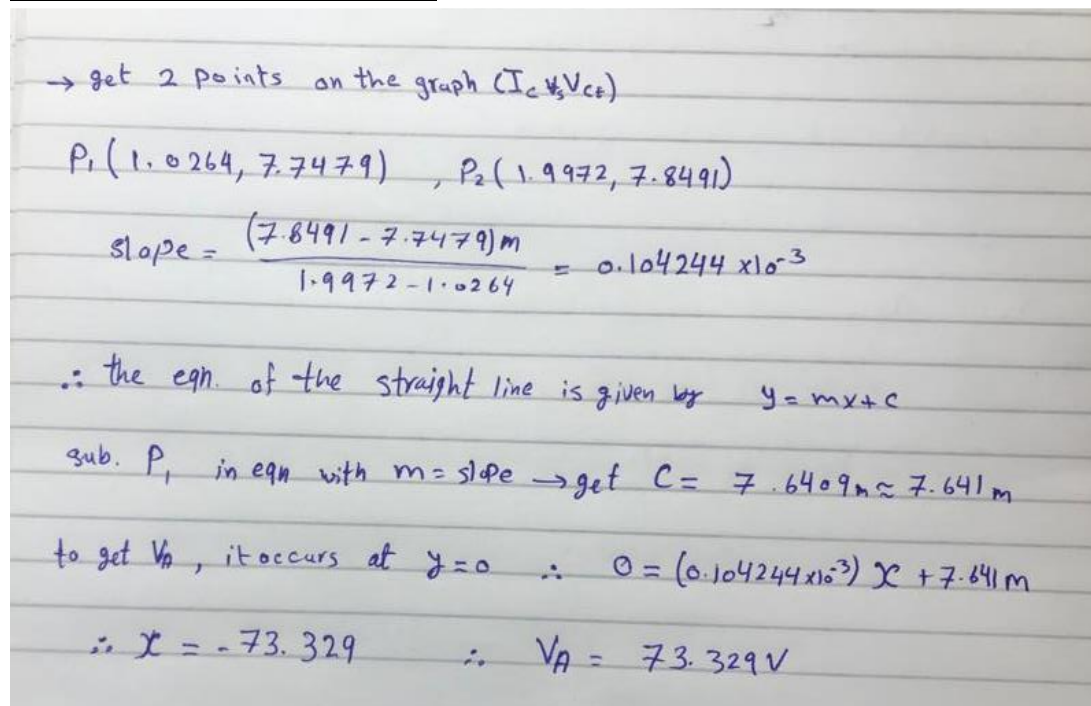 → get 2 points on the graph (Ic vs VCE)
P1 (1.0264, 7.7479) , P2 (1.9972, 7.8491)
slope = (7.8491 - 7.7479)m / 1.9972 - 1.0264 = 0.104244 x10-3
∴ the eqn. of the straight line is given by y = mx + c
sub. P1 in eqn with m = slope → get C = 7.6409m ≈ 7.641m
to get VA, it occurs at y=0 ∴ 0 = (0.104244x10-3) x + 7.641m
∴ x = -73.329 ∴ VA = 73.329V